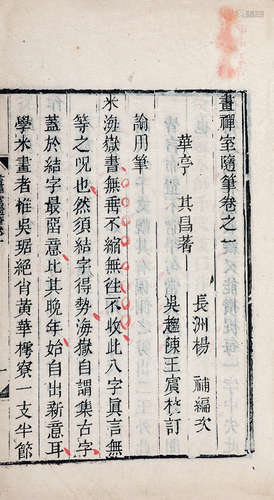 畫禪室隨筆卷之一
長洲楊 補編次
華亭 其昌著
吳趨陳王賓挍訂
論用筆
米海嶽書無垂不縮無往不收此八字眞言無
等之呪也然須結字得勢海嶽自謂集古字
蓋於結字最留意比其晚年始自出新意耳
學米書者惟吳琚絕肖黃華樗寮一支半節